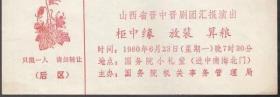 山西省晋中晋剧团汇报演出
柜中缘 放裴 算粮
时间：1960年6月23日（星期一）晚7时30分
地点：国务院小礼堂（进中南海北门）
主办：国务院机关事务管理局
只限一人 请勿转让
（后区）